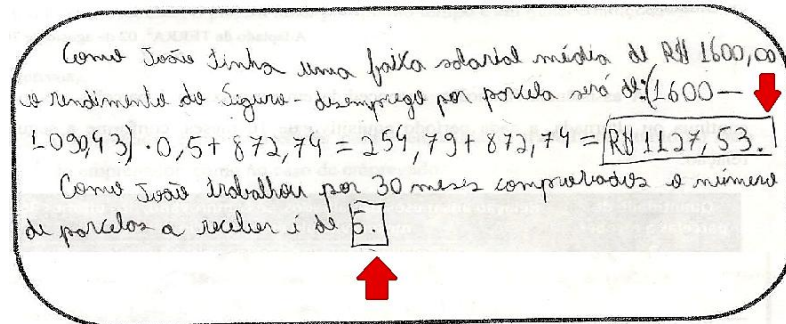 Como João tinha uma faixa salarial média de R$ 1600,00
o rendimento do Siguro-desemprego por porcela será de:(1600 —
1.090,43) · 0,5 + 872,74 = 254,79 + 872,74 = R$ 1127,53.
Como João trabalhou por 30 meses comprovados o número
de parcelas a receber é de 5.